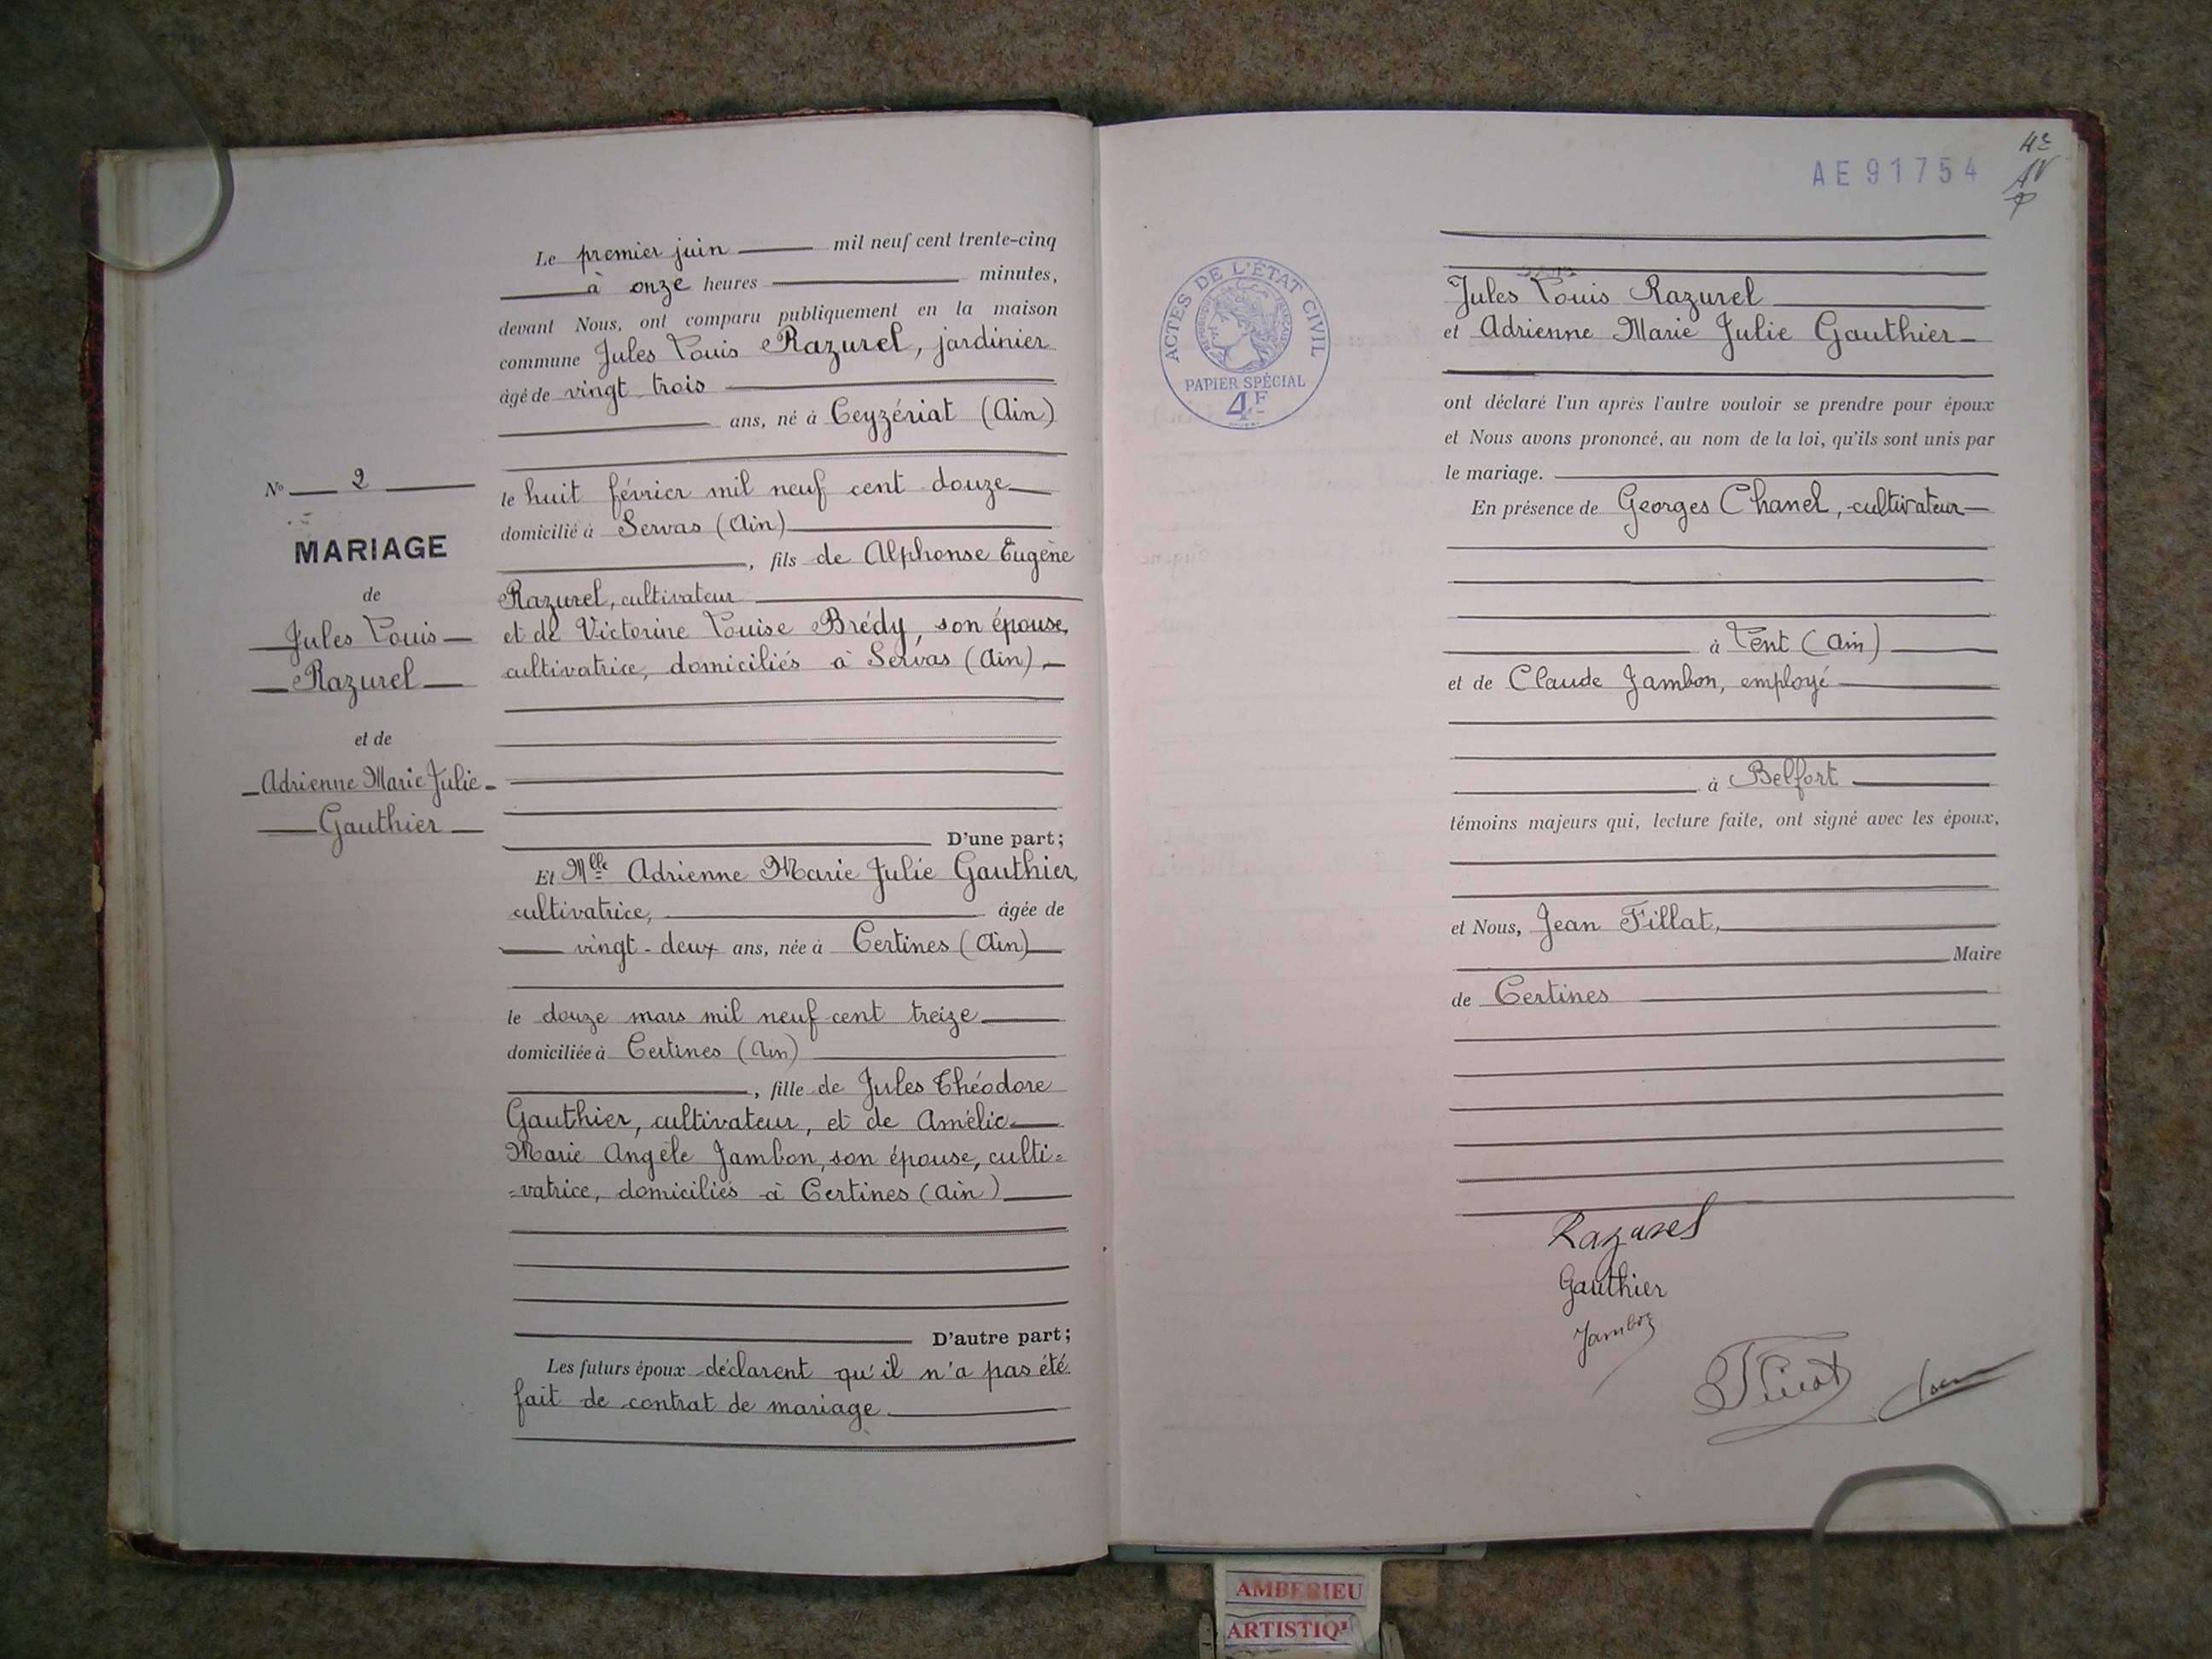 Le premier juin mil neuf cent trente-cinq
à onze heures minutes,
devant Nous, ont comparu publiquement en la maison
commune Jules Louis Razurel, jardinier
âgé de vingt trois
ans, né à Ceyzériat (Ain)
le huit février mil neuf cent douze
domicilié à Servas (Ain)
, fils de Alphonse Eugène
Razurel, cultivateur
et de Victorine Louise Brédy, son épouse,
cultivatrice, domiciliés à Servas (Ain)
D'une part;
Et Mlle Adrienne Marie Julie Gauthier,
cultivatrice, âgée de
vingt-deux ans, née à Certines (Ain)
le douze mars mil neuf cent treize
domiciliée à Certines (Ain)
, fille de Jules Théodore
Gauthier, cultivateur, et de Amélie
Marie Angèle Jambon, son épouse, culti=
=vatrice, domiciliés à Certines (Ain)
D'autre part;
Les futurs époux déclarent qu'il n'a pas été
fait de contrat de mariage
N° 2
MARIAGE
de
Jules Louis
Razurel
et de
Adrienne Marie Julie
Gauthier
AE 91754
ACTES DE L'ÉTAT CIVIL
PAPIER SPÉCIAL
4F
Jules Louis Razurel
et Adrienne Marie Julie Gauthier
ont déclaré l'un après l'autre vouloir se prendre pour époux
et Nous avons prononcé, au nom de la loi, qu'ils sont unis par
le mariage.
En présence de Georges Chanel, cultivateur
à Lent (Ain)
et de Claude Jambon, employé
à Belfort
témoins majeurs qui, lecture faite, ont signé avec les époux,
et Nous, Jean Fillat,
Maire
de Certines
Razurel
Gauthier
Jambon
AMBERIEU
ARTISTIQ